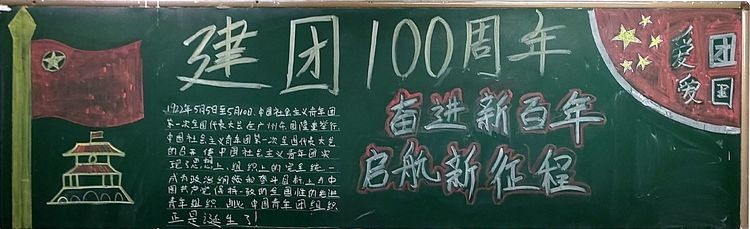 建团100周年
1922年5月5日至5月10日，中国社会主义青年团
第一次全国代表大会在广州东园隆重举行
中国社会主义青年团第一次全国代表大会
的召开使中国社会主义青年团实
现了思想上、组织上的完全统一
成为政治纲领和奋斗目标上与中
国共产党保持一致的全国性的先进
青年组织 中国青年团组织
正是诞生了！
奋进新百年
启航新征程
爱团
爱国